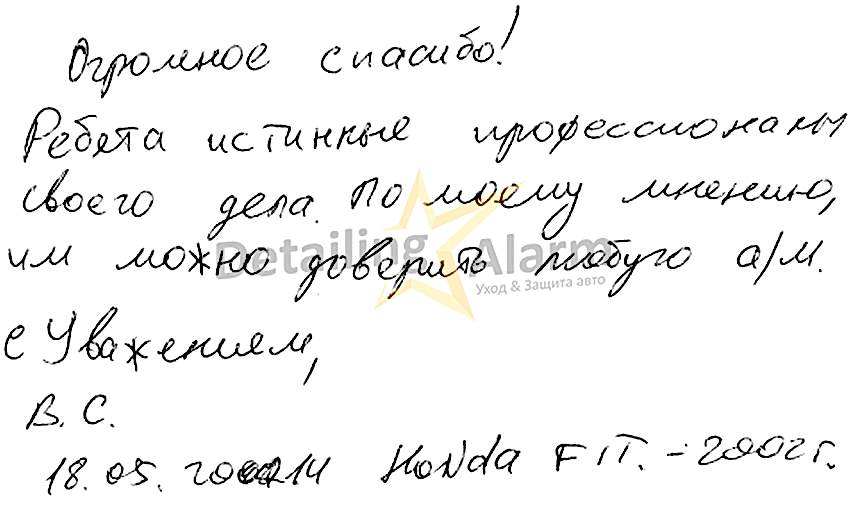 Огромное спасибо!
Ребята истинные профессионалы
своего дела. По моему мнению,
им можно доверить любую а/м.
Detailing Alarm
Уход & Защита авто
с Уважением,
В. С.
18.05. Honda FIT. - 2002г.